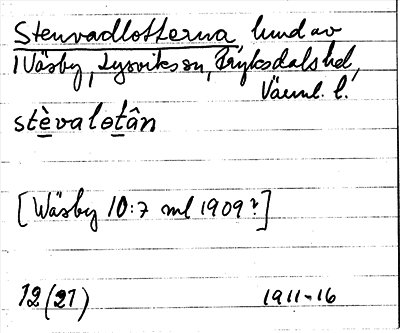 Stenvadlotterna, lund av
1 Väsby, Lysviks sn, Fryksdals hd,
Värml. l.
stèvalotân
[Wäsby 10:7 ml 1909?]
12(21) 1911-16